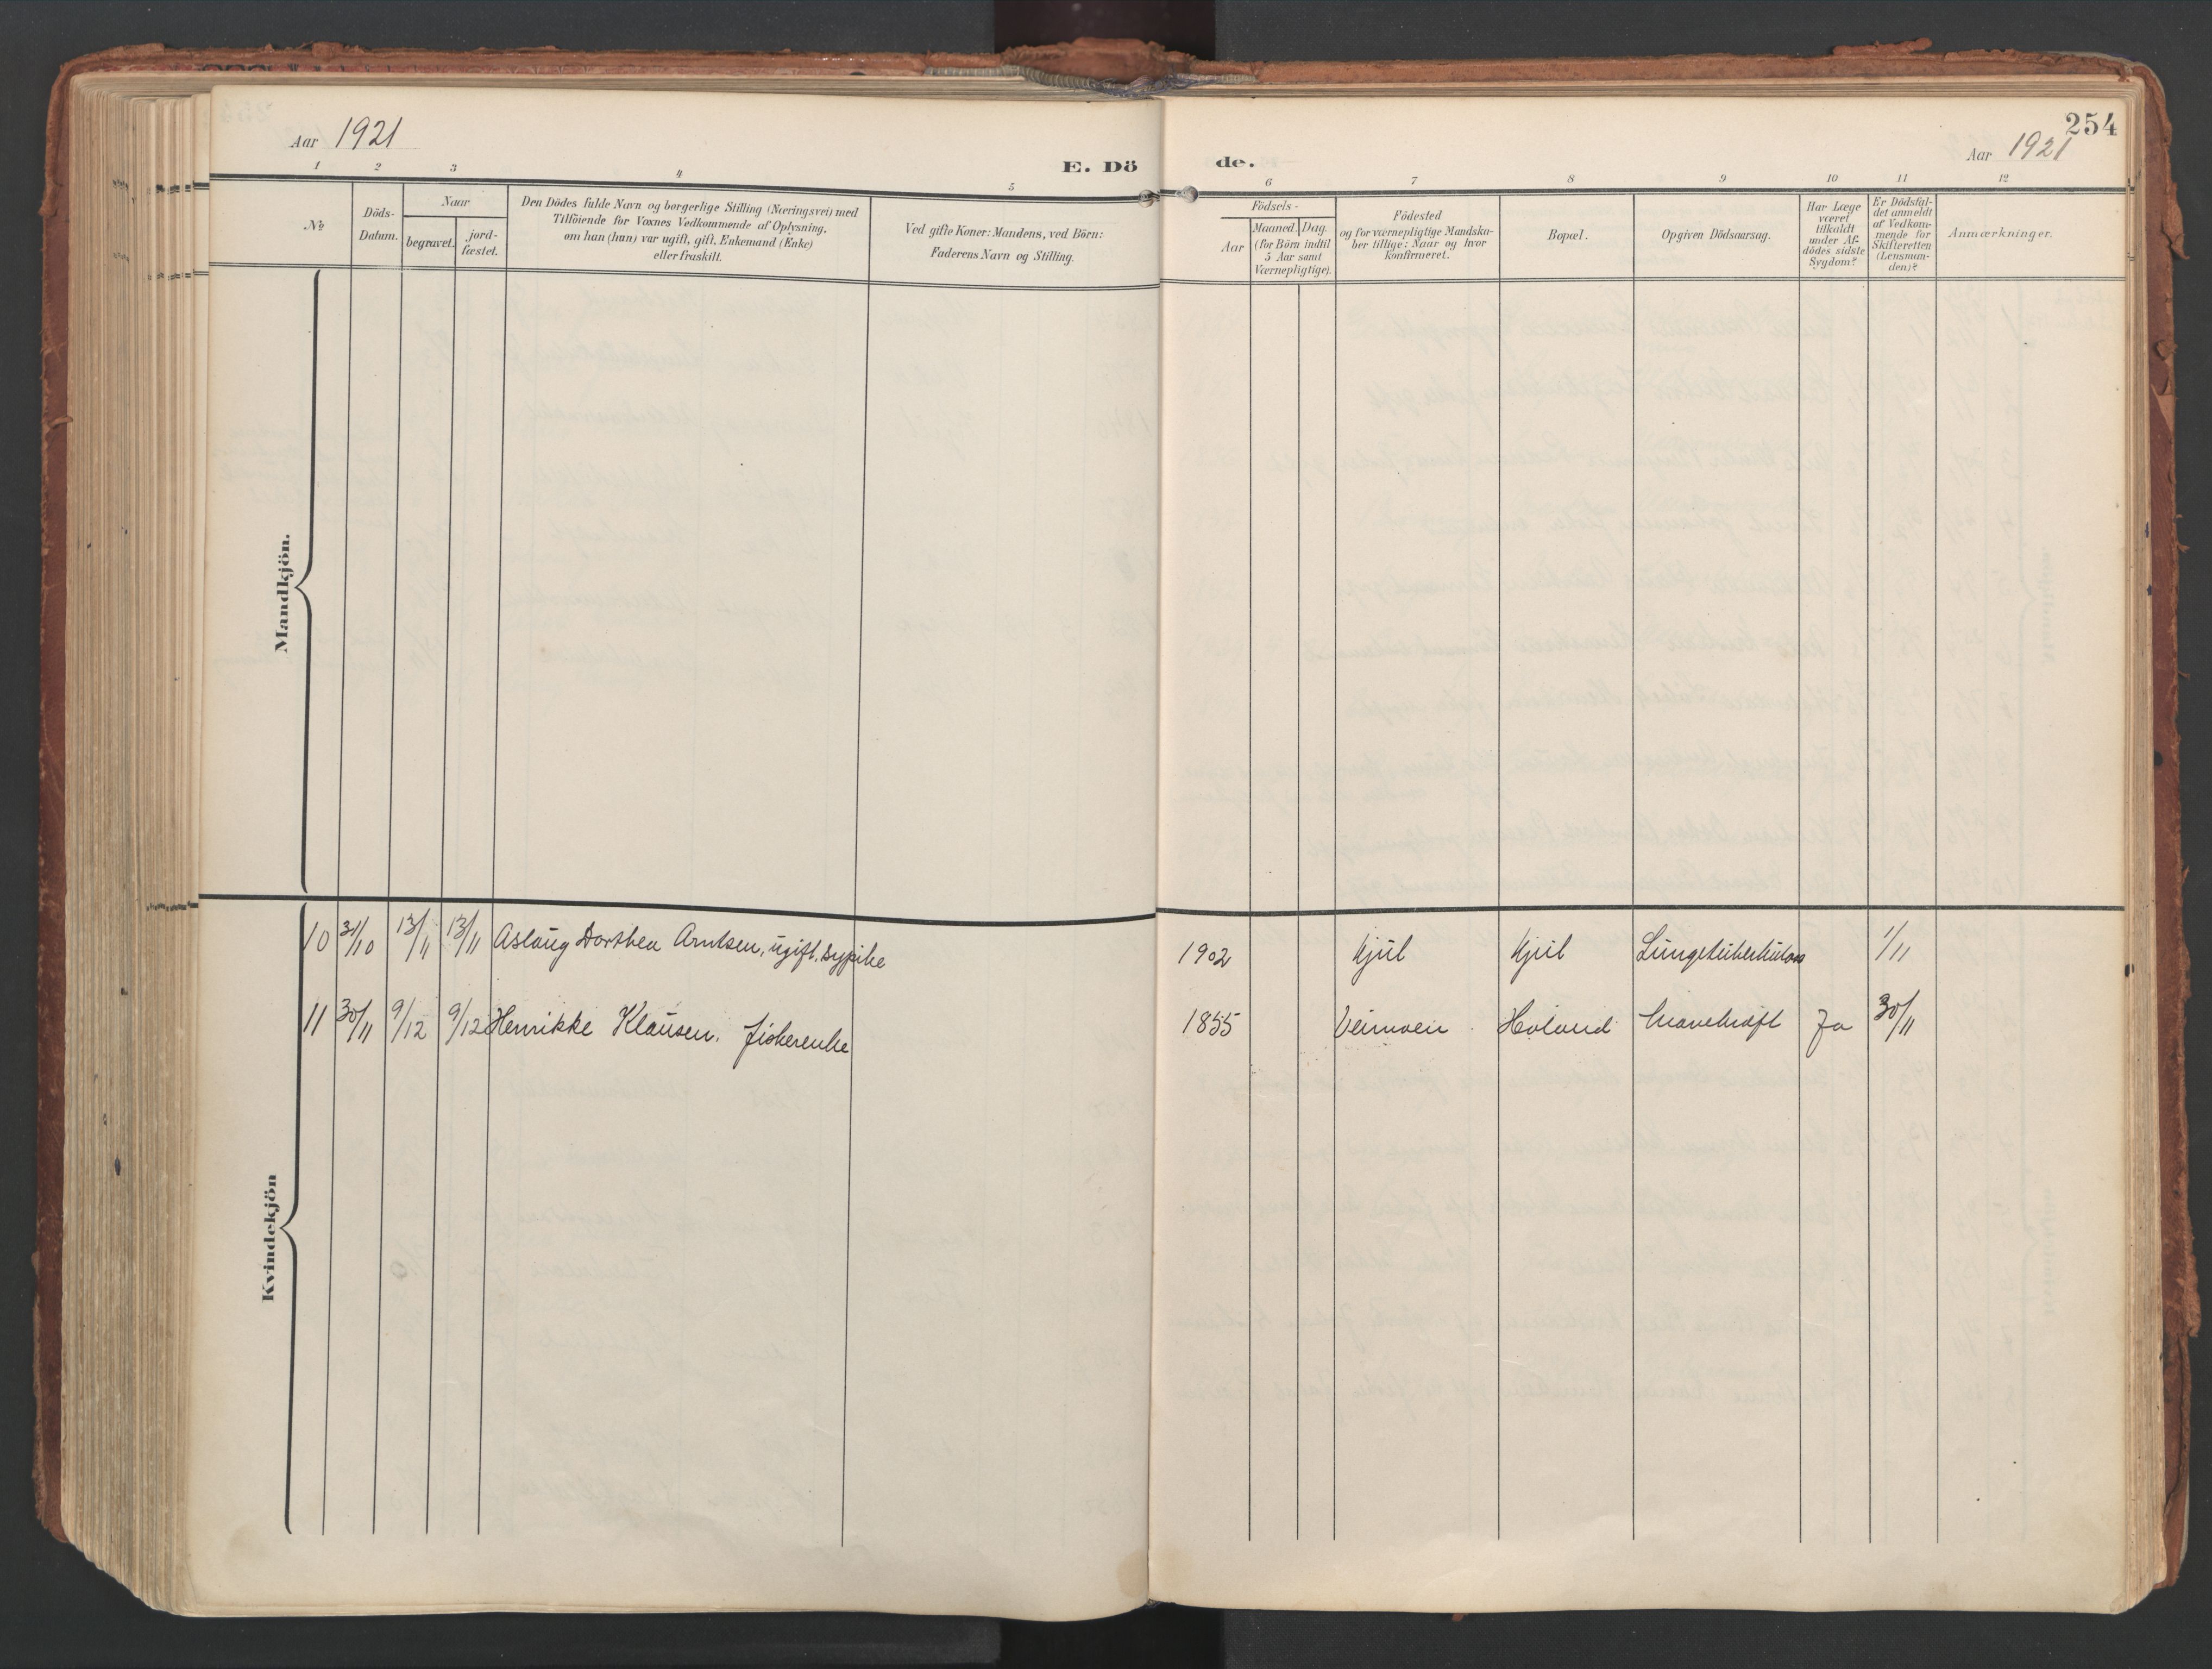 254
Aar 1921
E. Dö
de.
Aar 1921
1 2 3 4 5 6 7 8 9 10 11 12
№
Döds-
Datum.
Naar
begravet.
jord-
fæstet.
Den Dödes fulde Navn og borgerlige Stilling (Næringsvei) med
Tilföiende for Voxnes Vedkommende af Oplysning,
om han (hun) var ugift, gift, Enkemand (Enke)
eller fraskilt.
Ved gifte Koner: Mandens, ved Börn:
Faderens Navn og Stilling.
Födsels-
Aar
Maaned. Dag.
(for Börn indtil
5 Aar samt
Værnepligtige).
Födested
og for værnepligtige Mandska-
ber tillige: Naar og hvor
konfirmeret.
Bopæl.
Opgiven Dödsaarsag.
Har Læge
været
tilkaldt
under Af-
dödes sidste
Sygdom?
Er Dödsfal-
det anmeldt
af Vedkom-
mende for
Skifteretten
(Lensman-
den)?
Anmærkninger.
Mandkjön.
Kvindekjön
10 31/10 13/11 13/11 Aslaug Dorthea Arntsen, ugift, sypike 1902 Kjul Kjul Lungetuberkulos 1/11
11 30/11 9/12 9/12 Henrikke Klausen. fiskerenke 1855 Veimoen Holand Mavekræft Ja 30/11